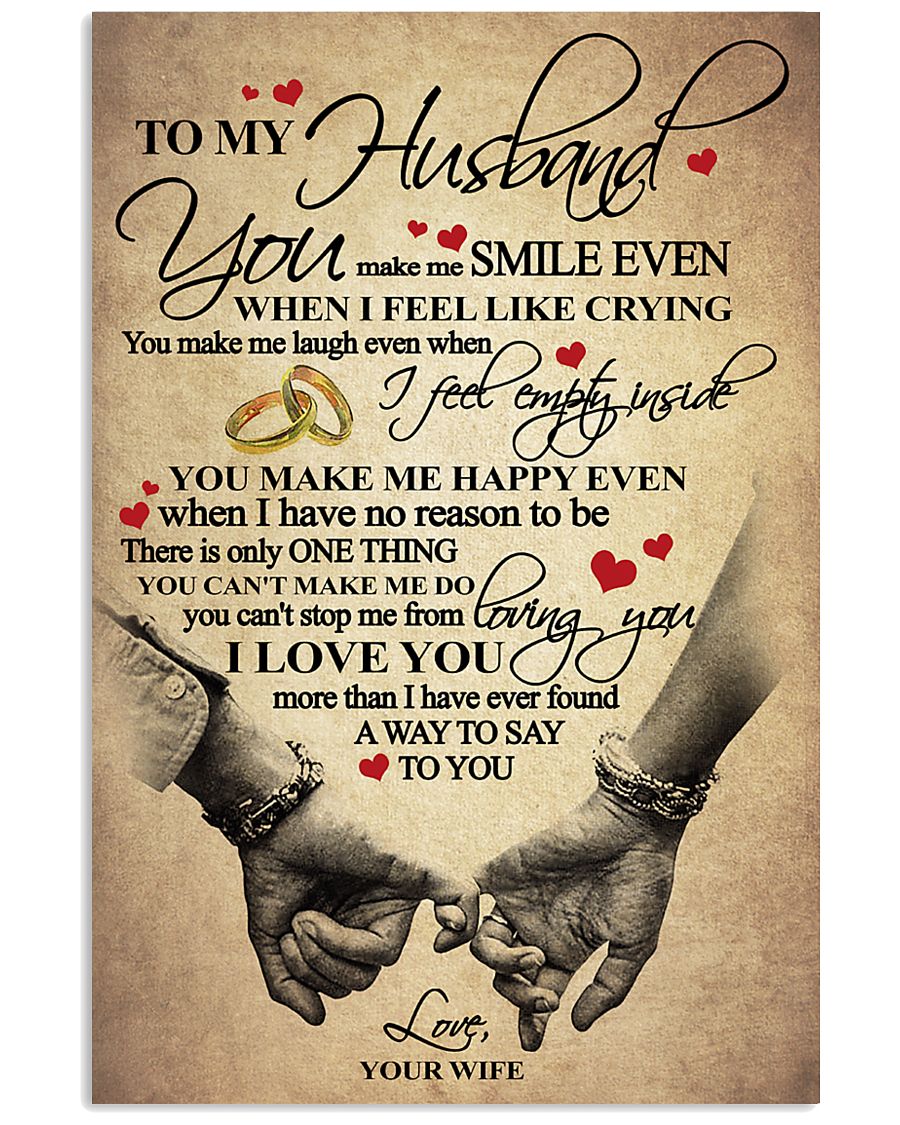 TO MY Husband
You make me SMILE EVEN
WHEN I FEEL LIKE CRYING
You make me laugh even when
I feel empty inside
YOU MAKE ME HAPPY EVEN
when I have no reason to be
There is only ONE THING
YOU CAN'T MAKE ME DO
you can't stop me from loving you
I LOVE YOU
more than I have ever found
A WAY TO SAY
TO YOU
Love,
YOUR WIFE